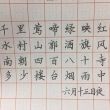 千里莺啼绿映红
水村山郭酒旗风
南朝四百八十寺
多少楼台烟雨中
六月十三日夜